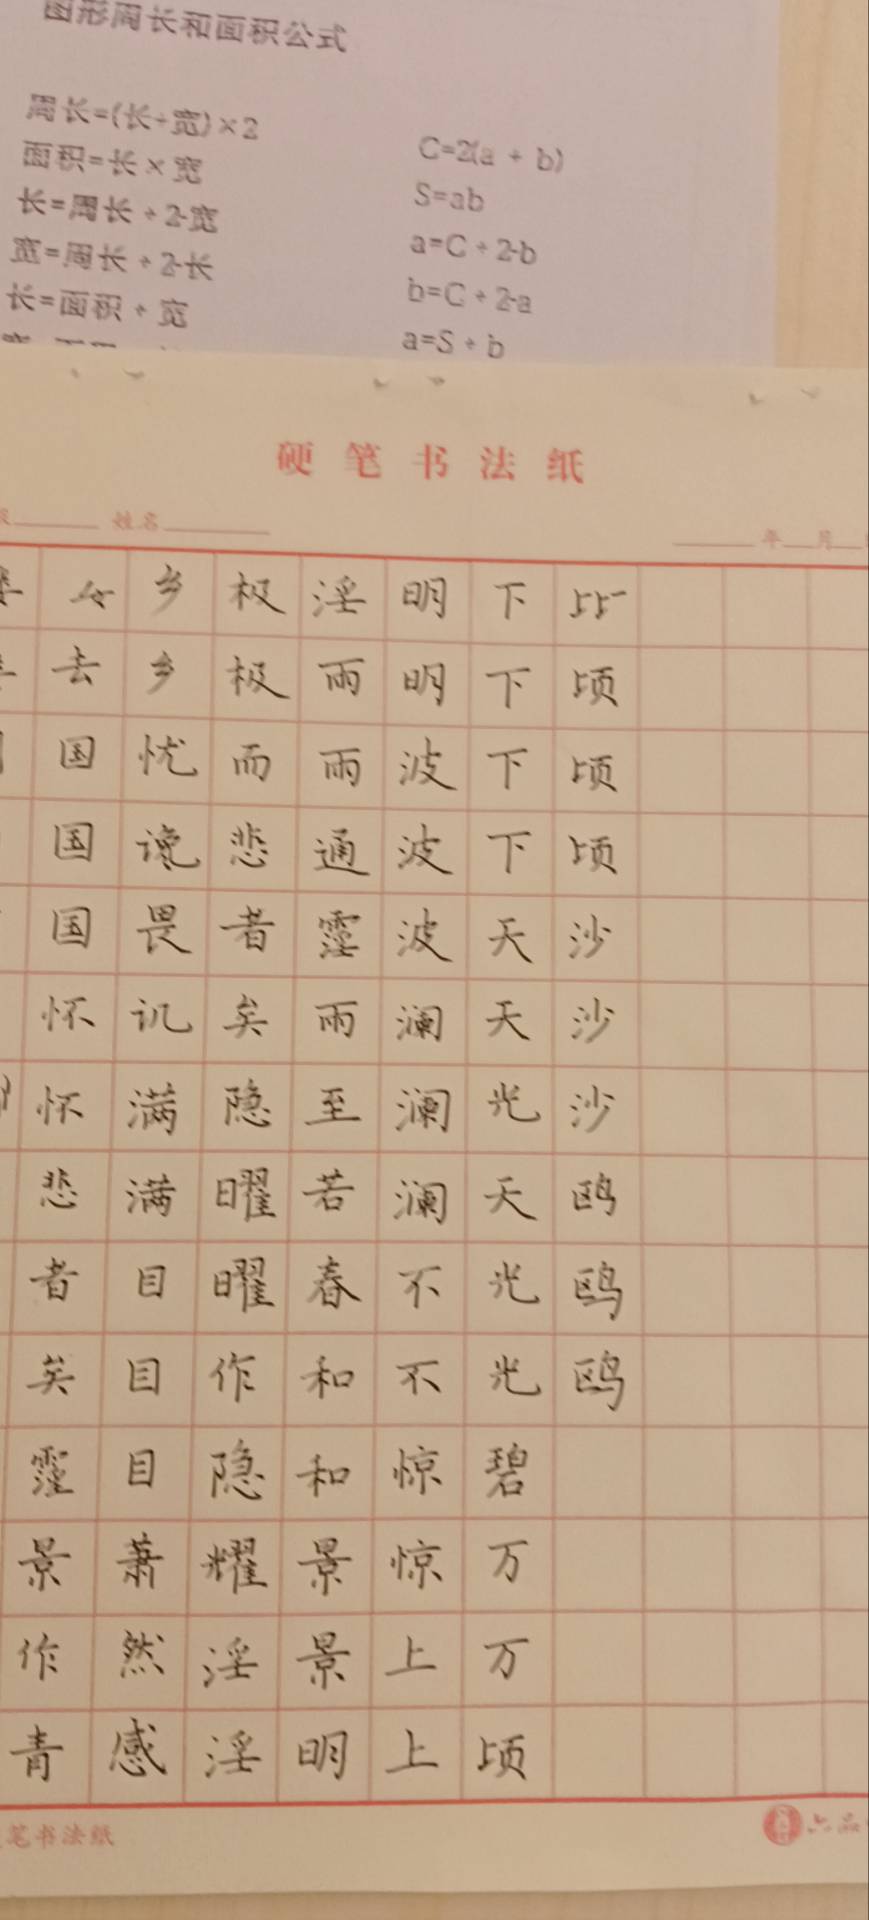 图形周长和面积公式
周长=(长+宽)×2
C=2(a + b)
面积=长×宽
S=ab
长=周长÷2-宽
a=C÷2-b
宽=周长÷2-长
b=C÷2-a
长=面积÷宽
a=S÷b
硬笔书法纸
姓名 年 月
乡 极 淫 明 下 比
去 乡 极 雨 明 下 顷
国 忧 而 雨 波 下 顷
国 谗 悲 通 波 下 顷
国 畏 者 霪 波 天 沙
怀 讥 矣 雨 澜 天 沙
怀 满 隐 至 澜 光 沙
悲 满 曜 若 澜 天 鸥
者 目 曜 春 不 光 鸥
矣 目 作 和 不 光 鸥
霪 目 隐 和 惊 碧
景 萧 耀 景 惊 万
作 然 淫 景 上 万
青 感 淫 明 上 顷
笔书法纸
六品